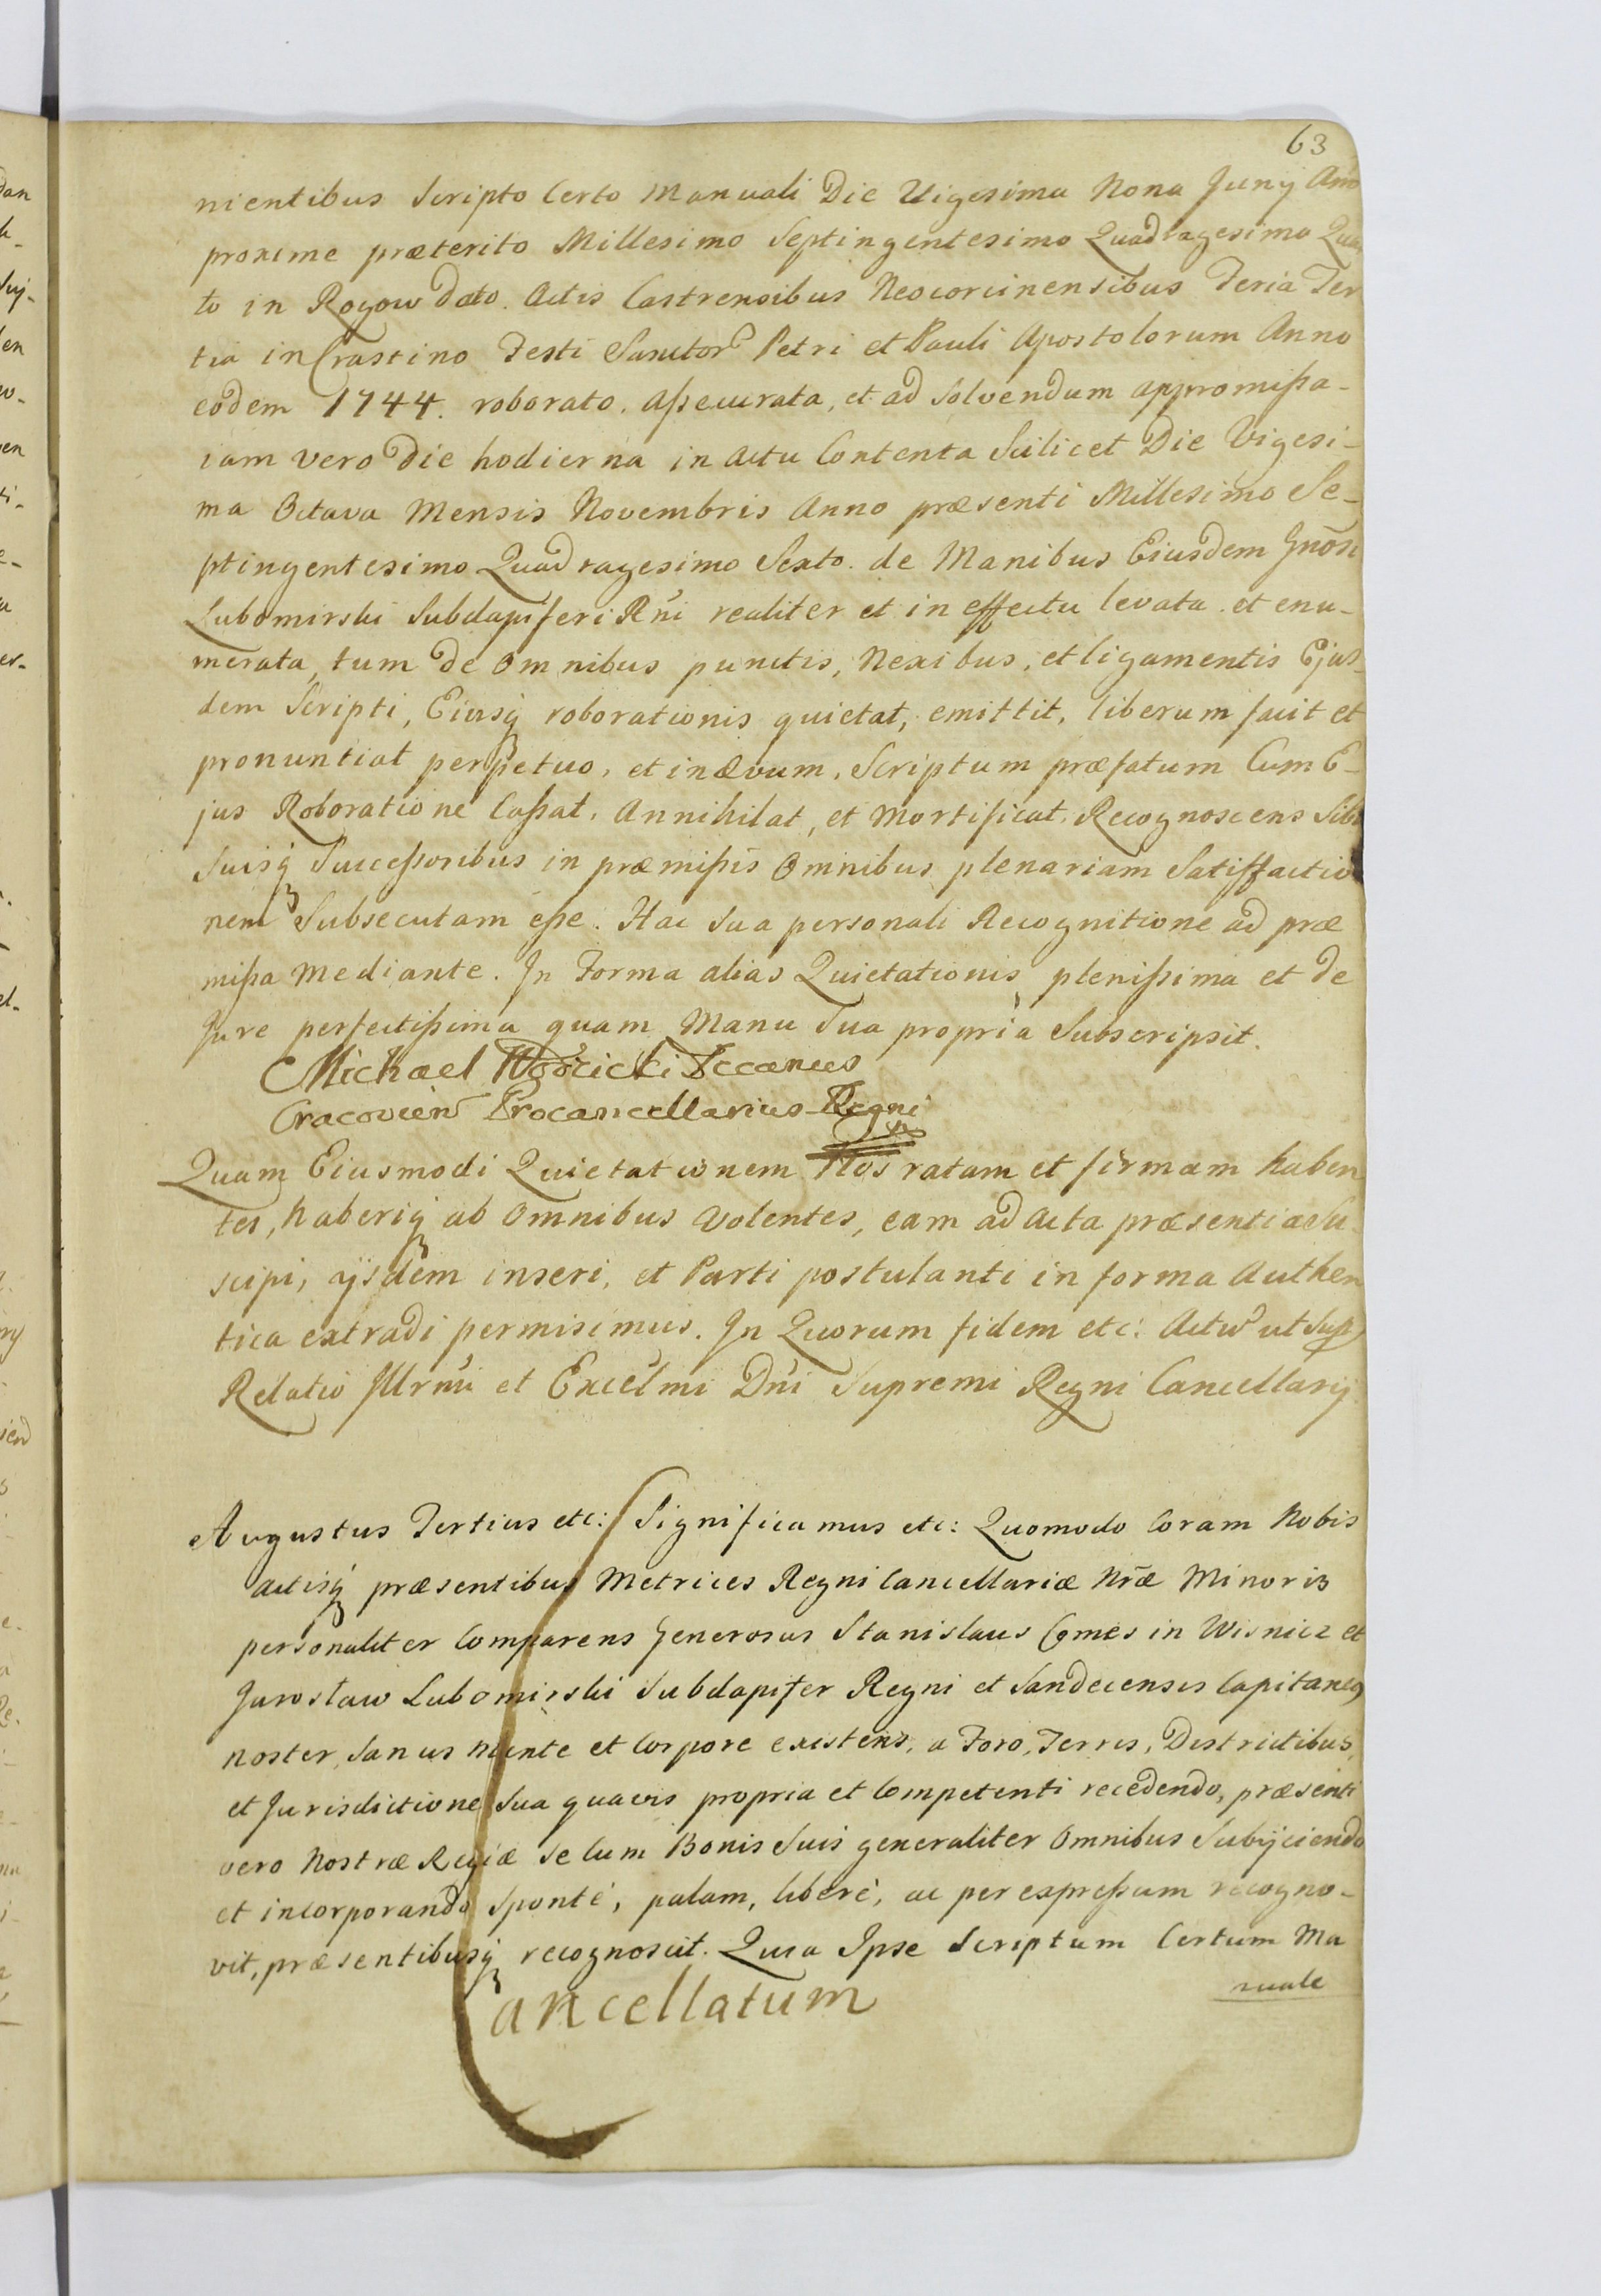 63
nientibus Scripto Certo Manuali Die Vigesima Nona Junij Anno
proxime præterito Millesimo Septingentesimo Quadragesimo Quar
to in Rogow dato. Actis Castrensibus Neocorcinensibus Feria Ter
tia in Crastino Festi Sanctor Petri et Pauli Apostolorum Anno
eodem 1744. roborato. Aßecurata, et ad Solvendum appromißa-
iam vero Die hodierna in Actu Contenta Scilicet Die Vigesi-
ma Octava Mensis Novembris Anno præsenti Millesimo Se-
ptingentesimo Quadragesimo Sexto. de Manibus Eiusdem Gnosi
Lubomirski Subdapiferi Rni realiter et in effectu levata. et enu-
merata, tum de Omnibus punctis, Nexibus, et ligamentis Ejus
dem Scripti, Eiusq roborationis quietat, emittit, liberum facit et
pronuntiat perpetuo, et in ævum, Scriptum præfatum Cum E-
jus Roboratione Caßat, Annihilat, et Mortificat, Recognoscens Sibi
Suisq Succeßoribus in præmißis Omnibus plenariam Satisfactio
nem Subsecutam eße. Hac Sua personali Recognitione ad præ
mißa Mediante. In Forma alias Quietationis plenißima et de
Jure perfectißima quam Manu Sua propria Subscripsit.
Michael Wodzicki Decanus
Cracovien Procancellarius Regni
Quam Eiusmodi Quietationem Nos ratam et firmam haben
tes, haberiq ab Omnibus Volentes, eam ad Acta præsentia Su
scipi, ijsdem inseri, et Parti postulanti in forma Authen
tica extradi permisimus. In Quorum fidem etc: Actu ut Sup
Relatio Illrmi et Excelmi Dni Supremi Regni Cancellarij
Augustus Tertius etc: Significamus etc: Quomodo Coram Nobis
Actisq præsentibus Metrices Regni Cancellariæ Nræ Minoris
personaliter Comparens Generosus Stanislaus Comes in Wisnicz et
Jarosław Lubomirski Subdapifer Regni et Sandecensis Capitaneus
noster, Sanus mente et Corpore existens, a Foro, Terris, Districtibus,
et Jurisdictione Sua quavis propria et Competenti recedendo, præsenti
vero Nostræ Regiæ Se Cum Bonis Suis generaliter Omnibus Subijciendo
et incorporando Sponté, palam, liberé, ac per expreßum recogno-
vit, præsentibusq recognoscit. Quia Ipse Scriptum Certum Ma
nuale
Cancellatum